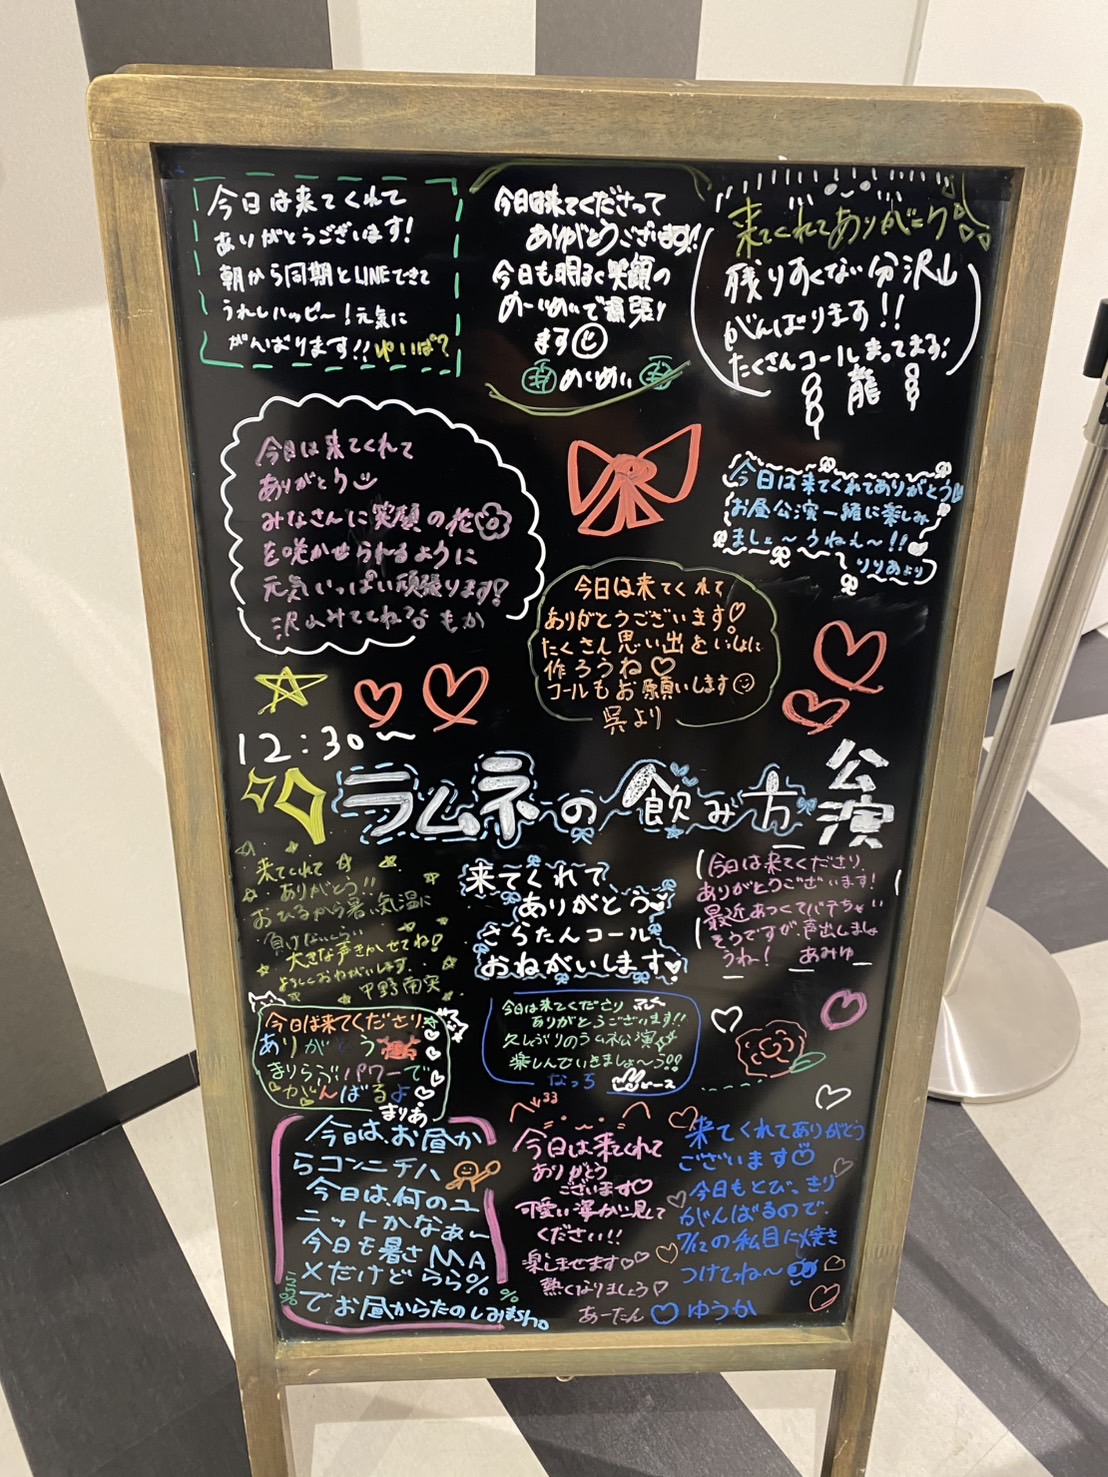 今日は来てくれて
ありがとうございます!
朝から同期とLINEできて
うれしハッピー!元気に
がんばります!! ゆいぱ?
今日は来てくださって
ありがとうございます!!
今日も明るく笑顔の
めいめいで頑張り
ます
めいめい
来てくれてありがとう
残りすくない分沢山
がんばります!!
たくさんコールまってえる!
龍
今日は来てくれて
ありがとう
みなさんに笑顔の花
を咲かせられるように
元気いっぱい頑張ります!
沢山みててね もか
今日は来てくれてありがとう
お昼公演一緒に楽しみ
ましょ〜うねぇ〜!!
りりあより
今日は来てくれて
ありがとうございます!♡
たくさん思い出をいっしょに
作ろうね♡
コールもお願いします
呉より
12:30〜
ラムネの飲み方 公演
来てくれて
ありがとう!!
おひるから暑い気温に
負けないくらい
大きな声きかせてね!
よろしくおねがいします
中野南実
来てくれて
ありがとう
さらたんコール
おねがいします
今日は来てくださり
ありがとうございます!
最近あつくてバテちゃい
そうですが、声出しましょ
うね! あみゆ
今日は来てくださり
ありがとう
まりらぶパワーで
がんばるよ
まりあ
今日は来てくださり
ありがとうございます!!
久しぶりのラムネ公演
楽しんでいきましょ〜う!!
なっち ピース
今日は、お昼か
らコンニチハ
今日は、何のユ
ニットかなぁ〜
今日も暑さMA
Xだけどらら%
でお昼からたのしみましho
らら% %
33
今日は来てくれて
ありがとう
ございます♡
可愛い姿が見て
ください!!
楽しませます♡♡
熱くなりましょう♡
あーたん
来てくれてありがとう
ございます
今日もとびっきり
がんばるので、
7/12の私目に焼き
つけてね〜
ゆうか